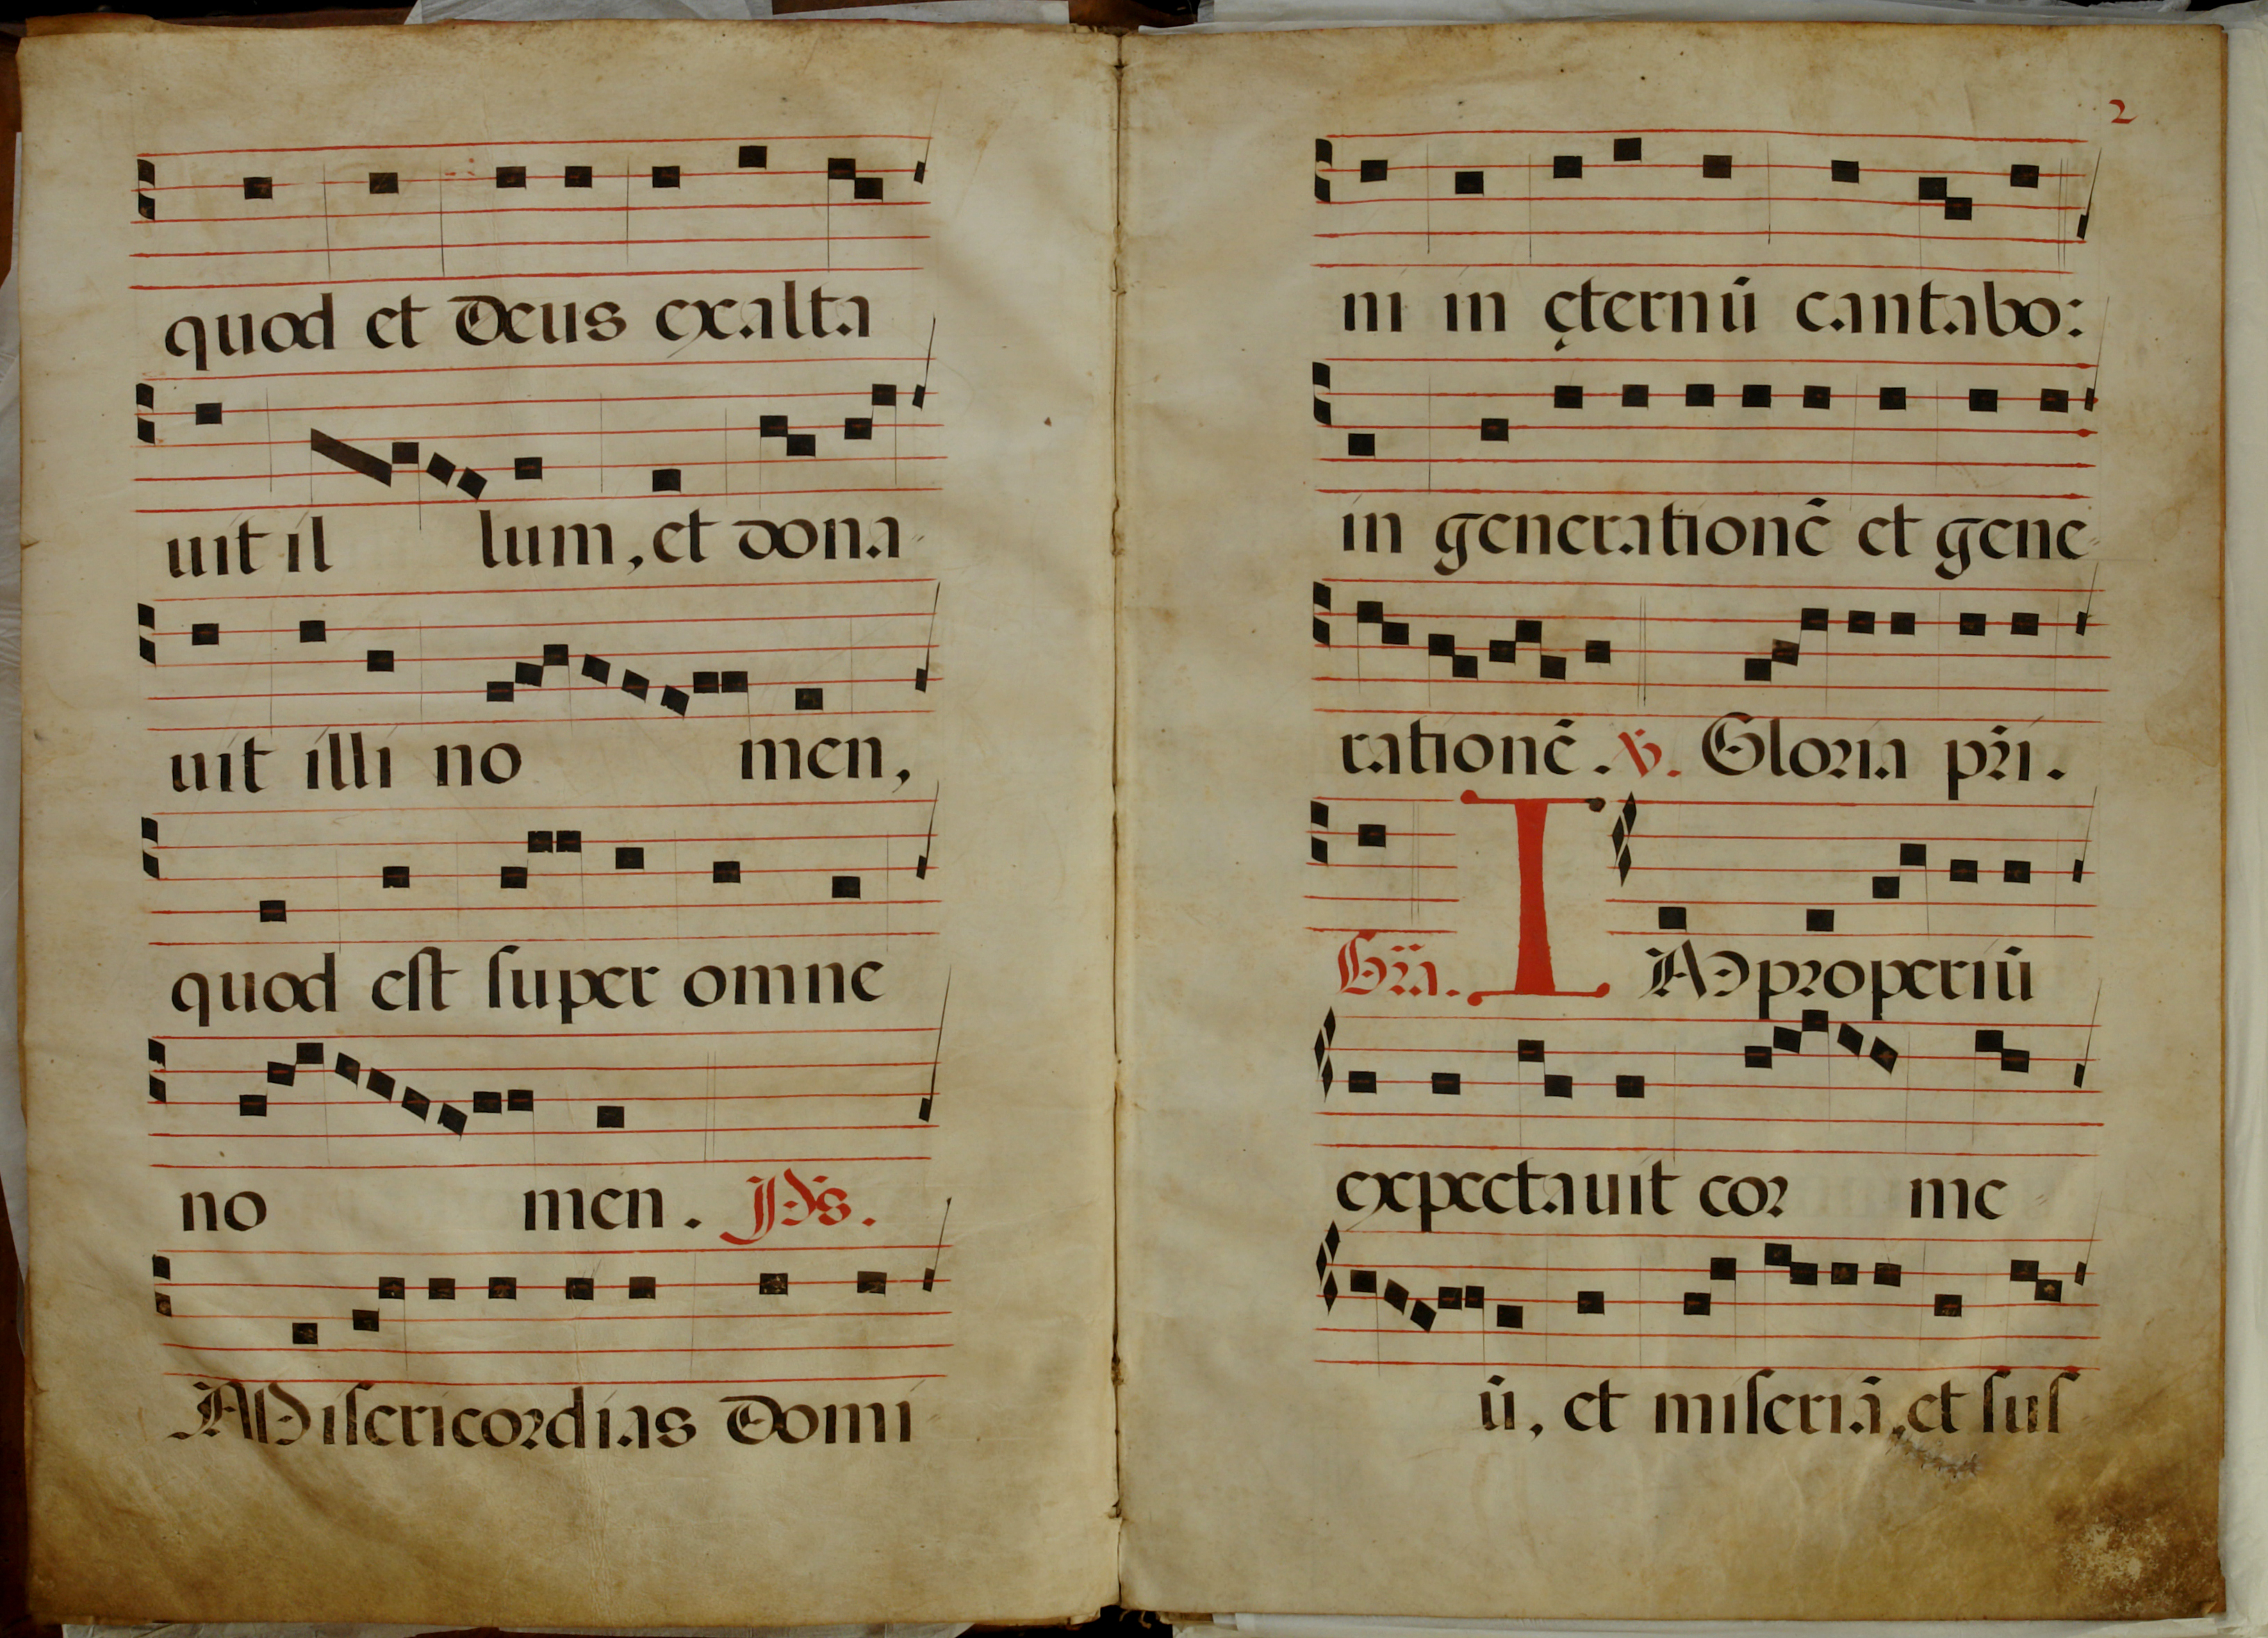 quod et Deus exalta
uit il lum, et dona
uit illi no men,
quod eſt ſuper omne
no men. Ps.
Miſericordias Domi
2
ni in ęternū cantabo:
in generationē et gene
rationē. ꝟ. Gloria pr̃i.
Gr̃a. IMproperiū
expectauit cor me
ū, et miſeriā, et ſuſ